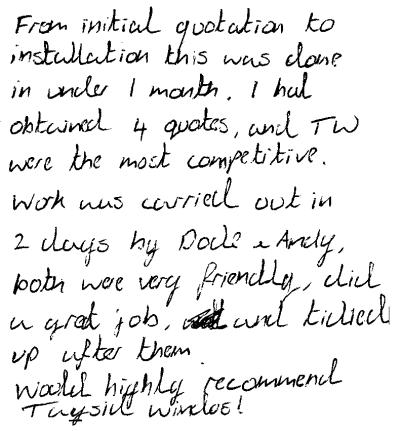 From initial quotation to
installation this was done
in under 1 month. I had
obtained 4 quotes, and TW
were the most competitive.
Work was carried out in
2 days by Dode & Andy,
both were very friendly, did
a great job, and tidied
up after them.
Would highly recommend
Tayside Windos!